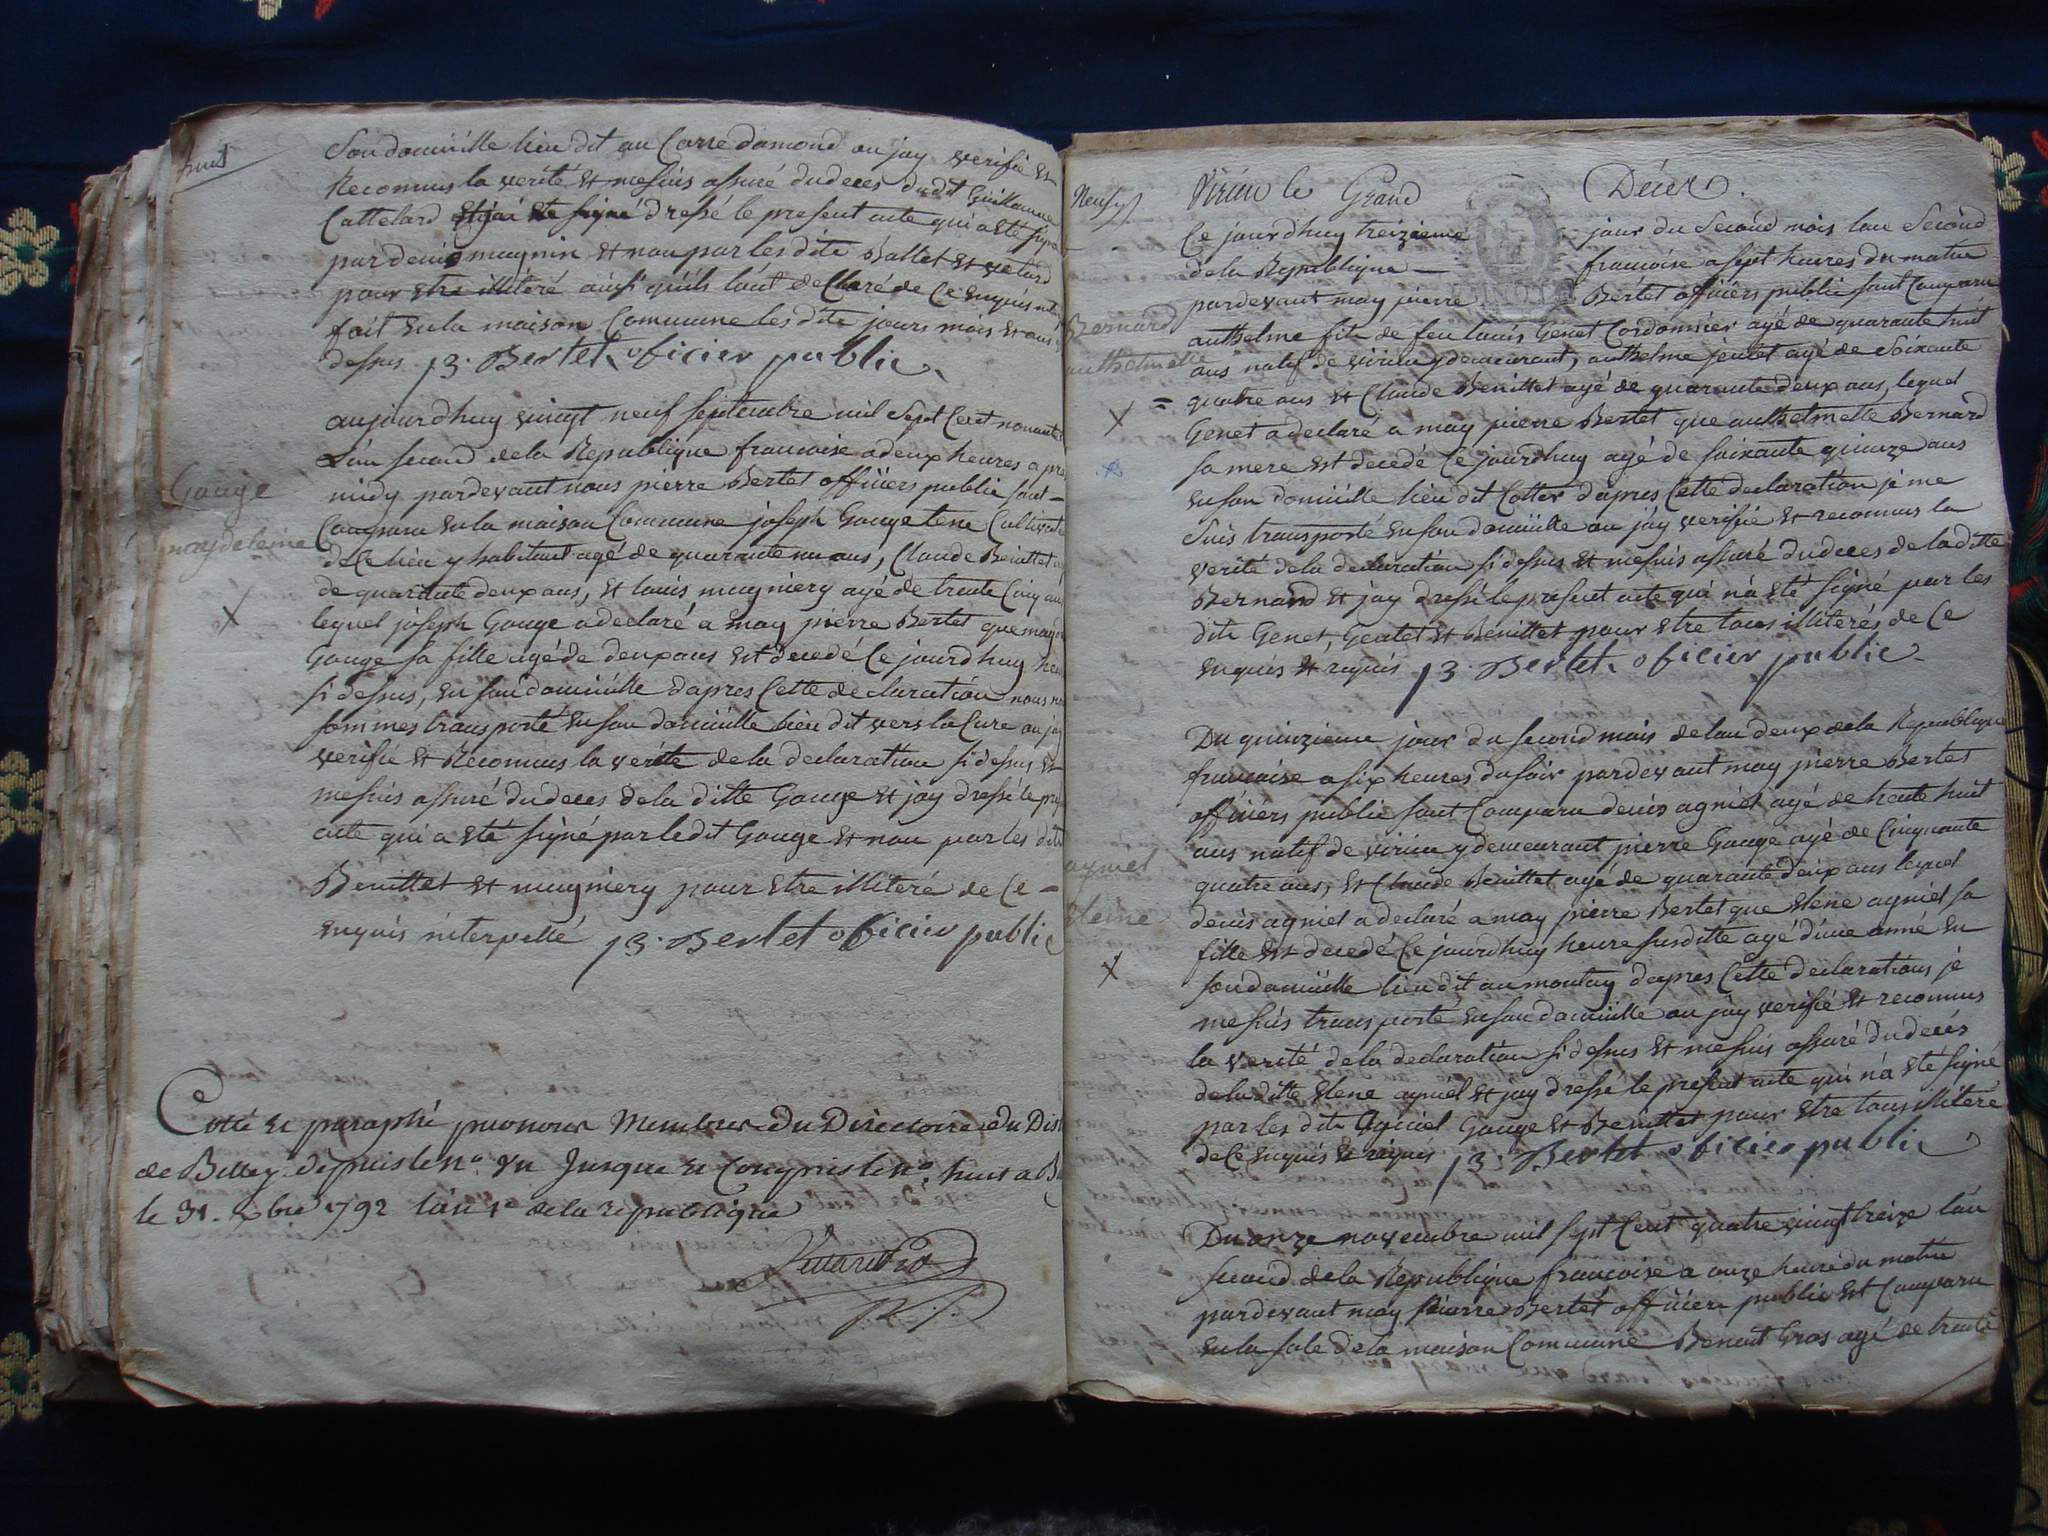 huit
Son domiciile lieu dit au Carre damond ou jay verifié et
Reconnus la verité et mesuis assuré dudeces dudit Guillaume
Cattelard et jai dressé le present acte qui a été signé
par denis mugnin et non par les dits Ballet et velard
pour etre illitéré ainsi quils lont declaré de ce enquis
fait en la maison Commune les dits jours mois et ans
dessus P. Bertet oficier public
Gouge
maydeleine
X
aujourdhuy vingt neuf septembre mil sept cent nonante
L'an second de la Republique francoise a deux heures apres
midy pardevant nous pierre Bertet officiers public sont
Comparu en la maison Commune joseph Gouge tene Cultivate
de Ce lieu y habitant agé de quarante un ans, Claude Benittet
de quarante deux ans, et louis mugniery agé de trente Cinq ans
lequel joseph Gouge a declaré a moy pierre Bertet que mayde
Gouge sa fille agé de deux ans est decedé Ce jourdhuy heure
si dessus, en son domiciile dapres Cette declaration nous
sommes transporté en son domiciile lieu dit vers la Cure ou jay
verifié et Reconnus la verité de la declaration si dessus et
mesuis assuré dudeces de la ditte Gouge et jay dressé le pres
acte qui a été signé par ledit Gouge et non par les dits
Benittet et mugniery pour etre illiteré de Ce
enquis interpellé P. Bertet oficier public
Cotté et paraphé par nous Membre du Directoire du Dis
de Belley depuis le no. un Jusque et Compris le no. huit a B
le 31. Xbre 1792 l'an 1er de la republique
Neuf
Virieu le Grand Décés
Bernard
anthelmette
X
Ce jourdhuy treizieme jour du Second mois lan Second
de la Republique francoise a sept heures du matin
pardevant moy pierre Bertet officiers public sont Comparu
anthelme fils de feu louis Genet Cordonnier agé de quarante huit
ans natif de virieu y demeurant, anthelme jentet agé de soixante
quatre ans et Claude Benittet agé de quarante deux ans, lequel
Genet a declaré a moy pierre Bertet que anthelmette Bernard
sa mere est decedé Ce jourdhuy agé de soixante quinze ans
en son domiciile lieu dit Cotter dapres Cette declaration je me
suis transporté en son domiciile ou j'ay verifié et reconnus la
verité de la declaration si dessus et mesuis assuré dudeces de la ditte
Bernard et jay dressé le present acte qui n'a été signé par les
dits Genet, Gentet et Benittet pour etre tous illitérés de Ce
enquis et requis P. Bertet oficier public
agniel
elene
X
Du quinzieme jour du second mois de lan deux de la Republique
francoise a six heures du soir pardevant moy pierre Bertet
officiers public sont Comparu denis agniel agé de trente huit
ans natif de virieu y demeurant pierre Gouge agé de Cinquante
quatre ans, et Claude Benittet agé de quarante deux ans lequel
denis agniel a declaré a moy pierre Bertet que elene agniel sa
fille est decedé Ce jourdhuy heure susditte agé d'une anné en
son domiciile lieu dit au montay dapres Cette declarations je
mesuis transporté en son domiciile ou jay verifié et reconnus
la verité de la declaration si dessus et mesuis assuré du decés
de la ditte elene agniel et jay dressé le present acte qui n'a été signé
par les dits Agniel Gouge et Benittet pour etre tous illiteré
de Ce enquis et requis P. Bertet oficier public
Du onze novembre mil sept Cent quatre vingt treize l'an
second de la Republique francoise a onze heure du matin
pardevant moy Pierre Bertet officier public est Comparu
en la sale de la maison Commune Benoit Gros agé de trente